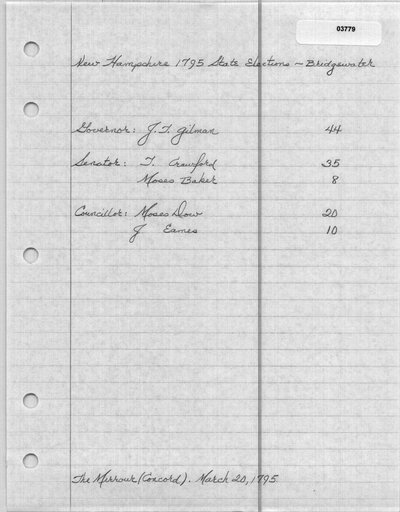 03779
New Hampshire 1795 State Elections - Bridgewater
Governor: J. T. Gilman 44
Senator: T. Crawford 35
Moses Baker 8
Councillor: Moses Dow 20
J Eames 10
The Mirrour (Concord). March 20, 1795